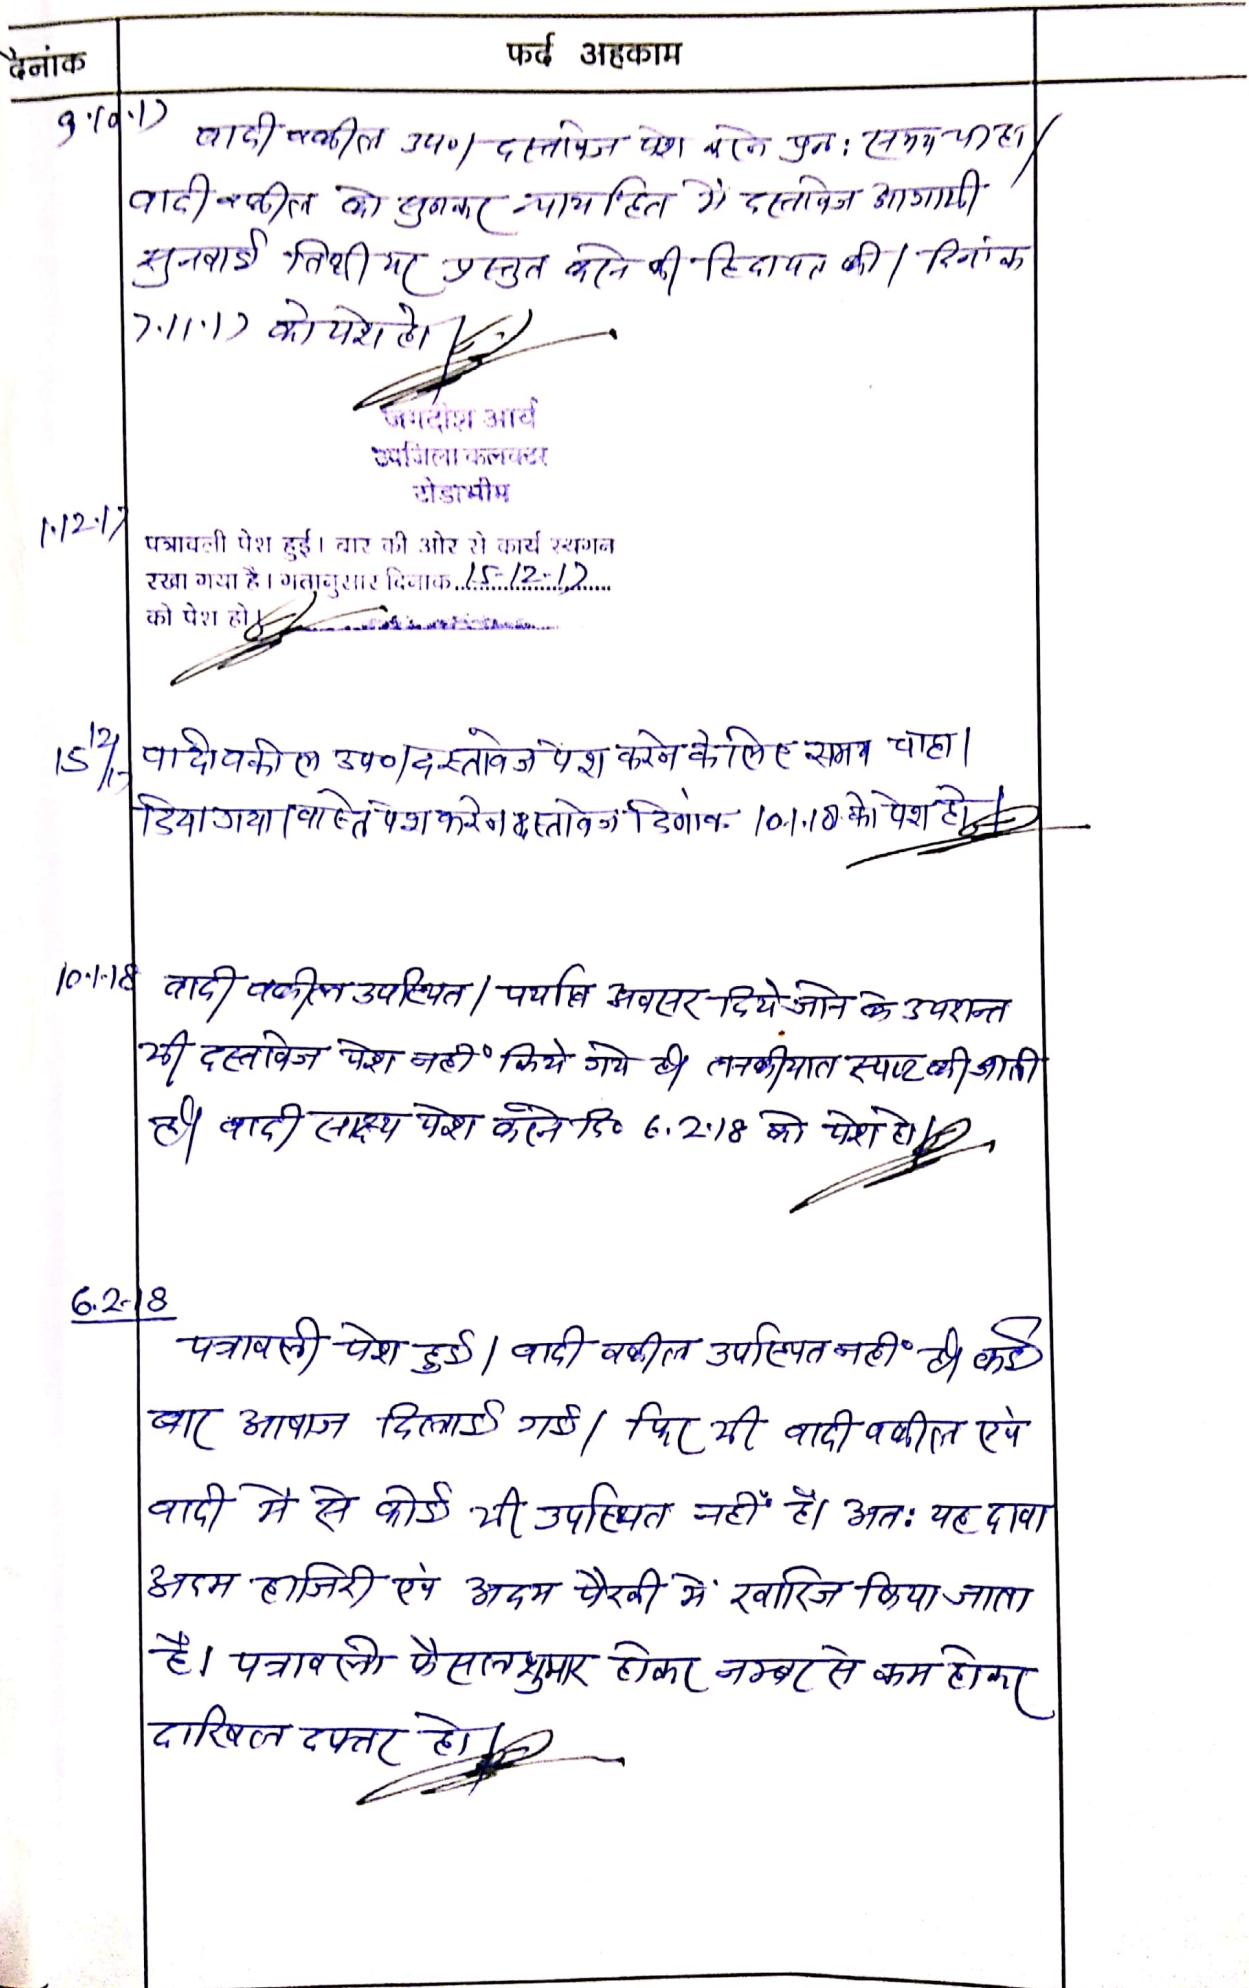 दैनांक
फर्द अहकाम
9.10.17
वादी वकील उप०। दस्तावेज पेश करने पुनः समय चाहा।
वादी वकील को सुनकर न्यायहित में दस्तावेज आगामी
सुनवाई तिथी पर प्रस्तुत करने की हिदायत की। दिनांक
7.11.17 को पेश हो।
जगदीश आर्य
उपजिला कलक्टर
टोडाभीम
1.12.17
पत्रावली पेश हुई। बार की ओर से कार्य स्थगन
रखा गया है। गतानुसार दिनाक 15-12-17
को पेश हो।
15 12/17
वादी वकील उप०। दस्तावेज पेश करने के लिए समय चाहा।
दिया गया। वास्ते पेश करने दस्तावेज दिनांक 10.1.18 को पेश हो।
10.1.18
वादी वकील उपस्थित। पर्याप्त अवसर दिये जाने के उपरान्त
भी दस्तावेज पेश नहीं किये गये है। तनकीयात की जाती
है। वादी साक्ष्य पेश करने दि० 6.2.18 को पेश हो।
6.2.18
पत्रावली पेश हुई। वादी वकील उपस्थित नहीं है। कई
बार आवाज दिलाई गई। फिर भी वादी वकील एवं
वादी में से कोई भी उपस्थित नहीं है। अतः यह दावा
अदम हाजिरी एवं अदम पैरवी में खारिज किया जाता
है। पत्रावली फैसलशुमार होकर नम्बर से कम होकर
दाखिल दफ्तर हो।